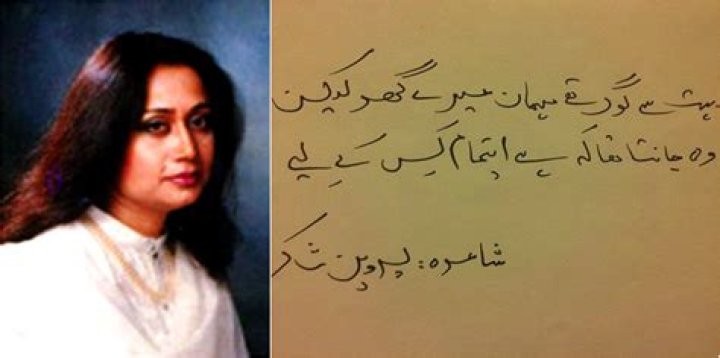 بہت سے لوگ تھے مہمان میرے گھر لیکن
وہ جانتا تھا کہ ہے اہتمام کس کے لیے
شاعرہ: پروین شاکر